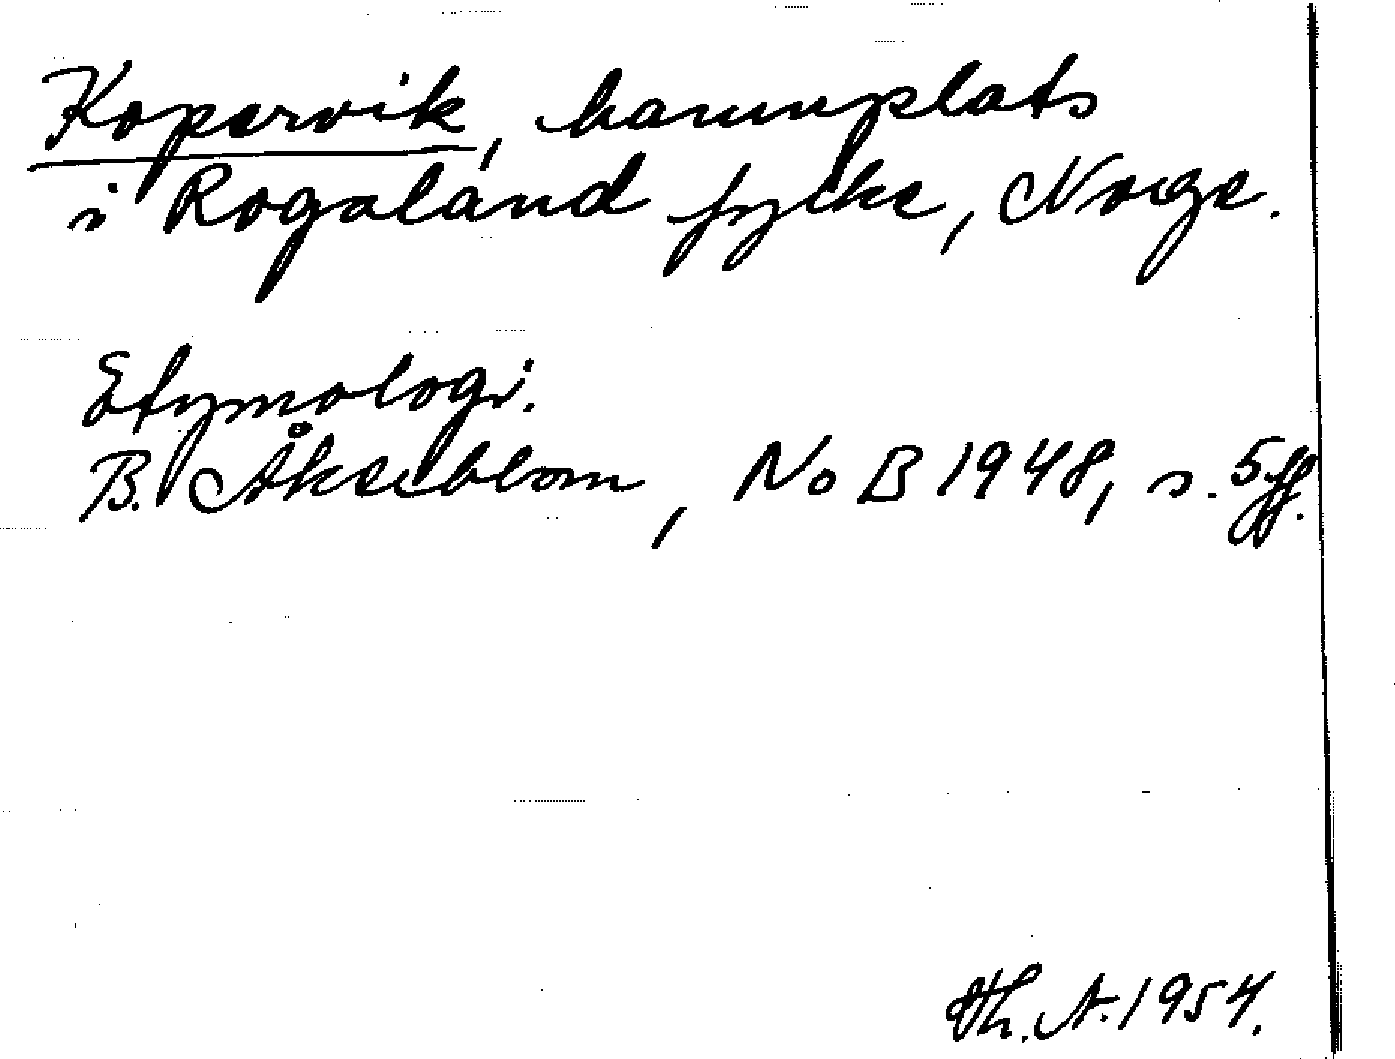 Kopervik, hamnplats
i Rogaland fylke, Norge.
Etymologi.
B. Åkseblom, NoB 1948, s. 5 ff.
Th. A. 1954.